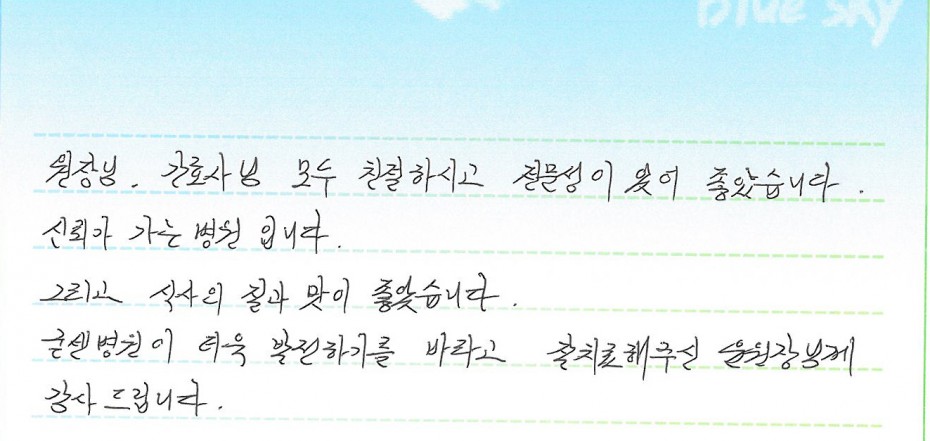 Blue Sky
원장님, 간호사님 모두 친절하시고 전문성이 있어 좋았습니다.
신뢰가 가는 병원 입니다.
그리고 식사의 질과 맛이 좋았습니다.
굳센병원이 더욱 발전하기를 바라고 잘치료해주신 윤원장님께
감사 드립니다.